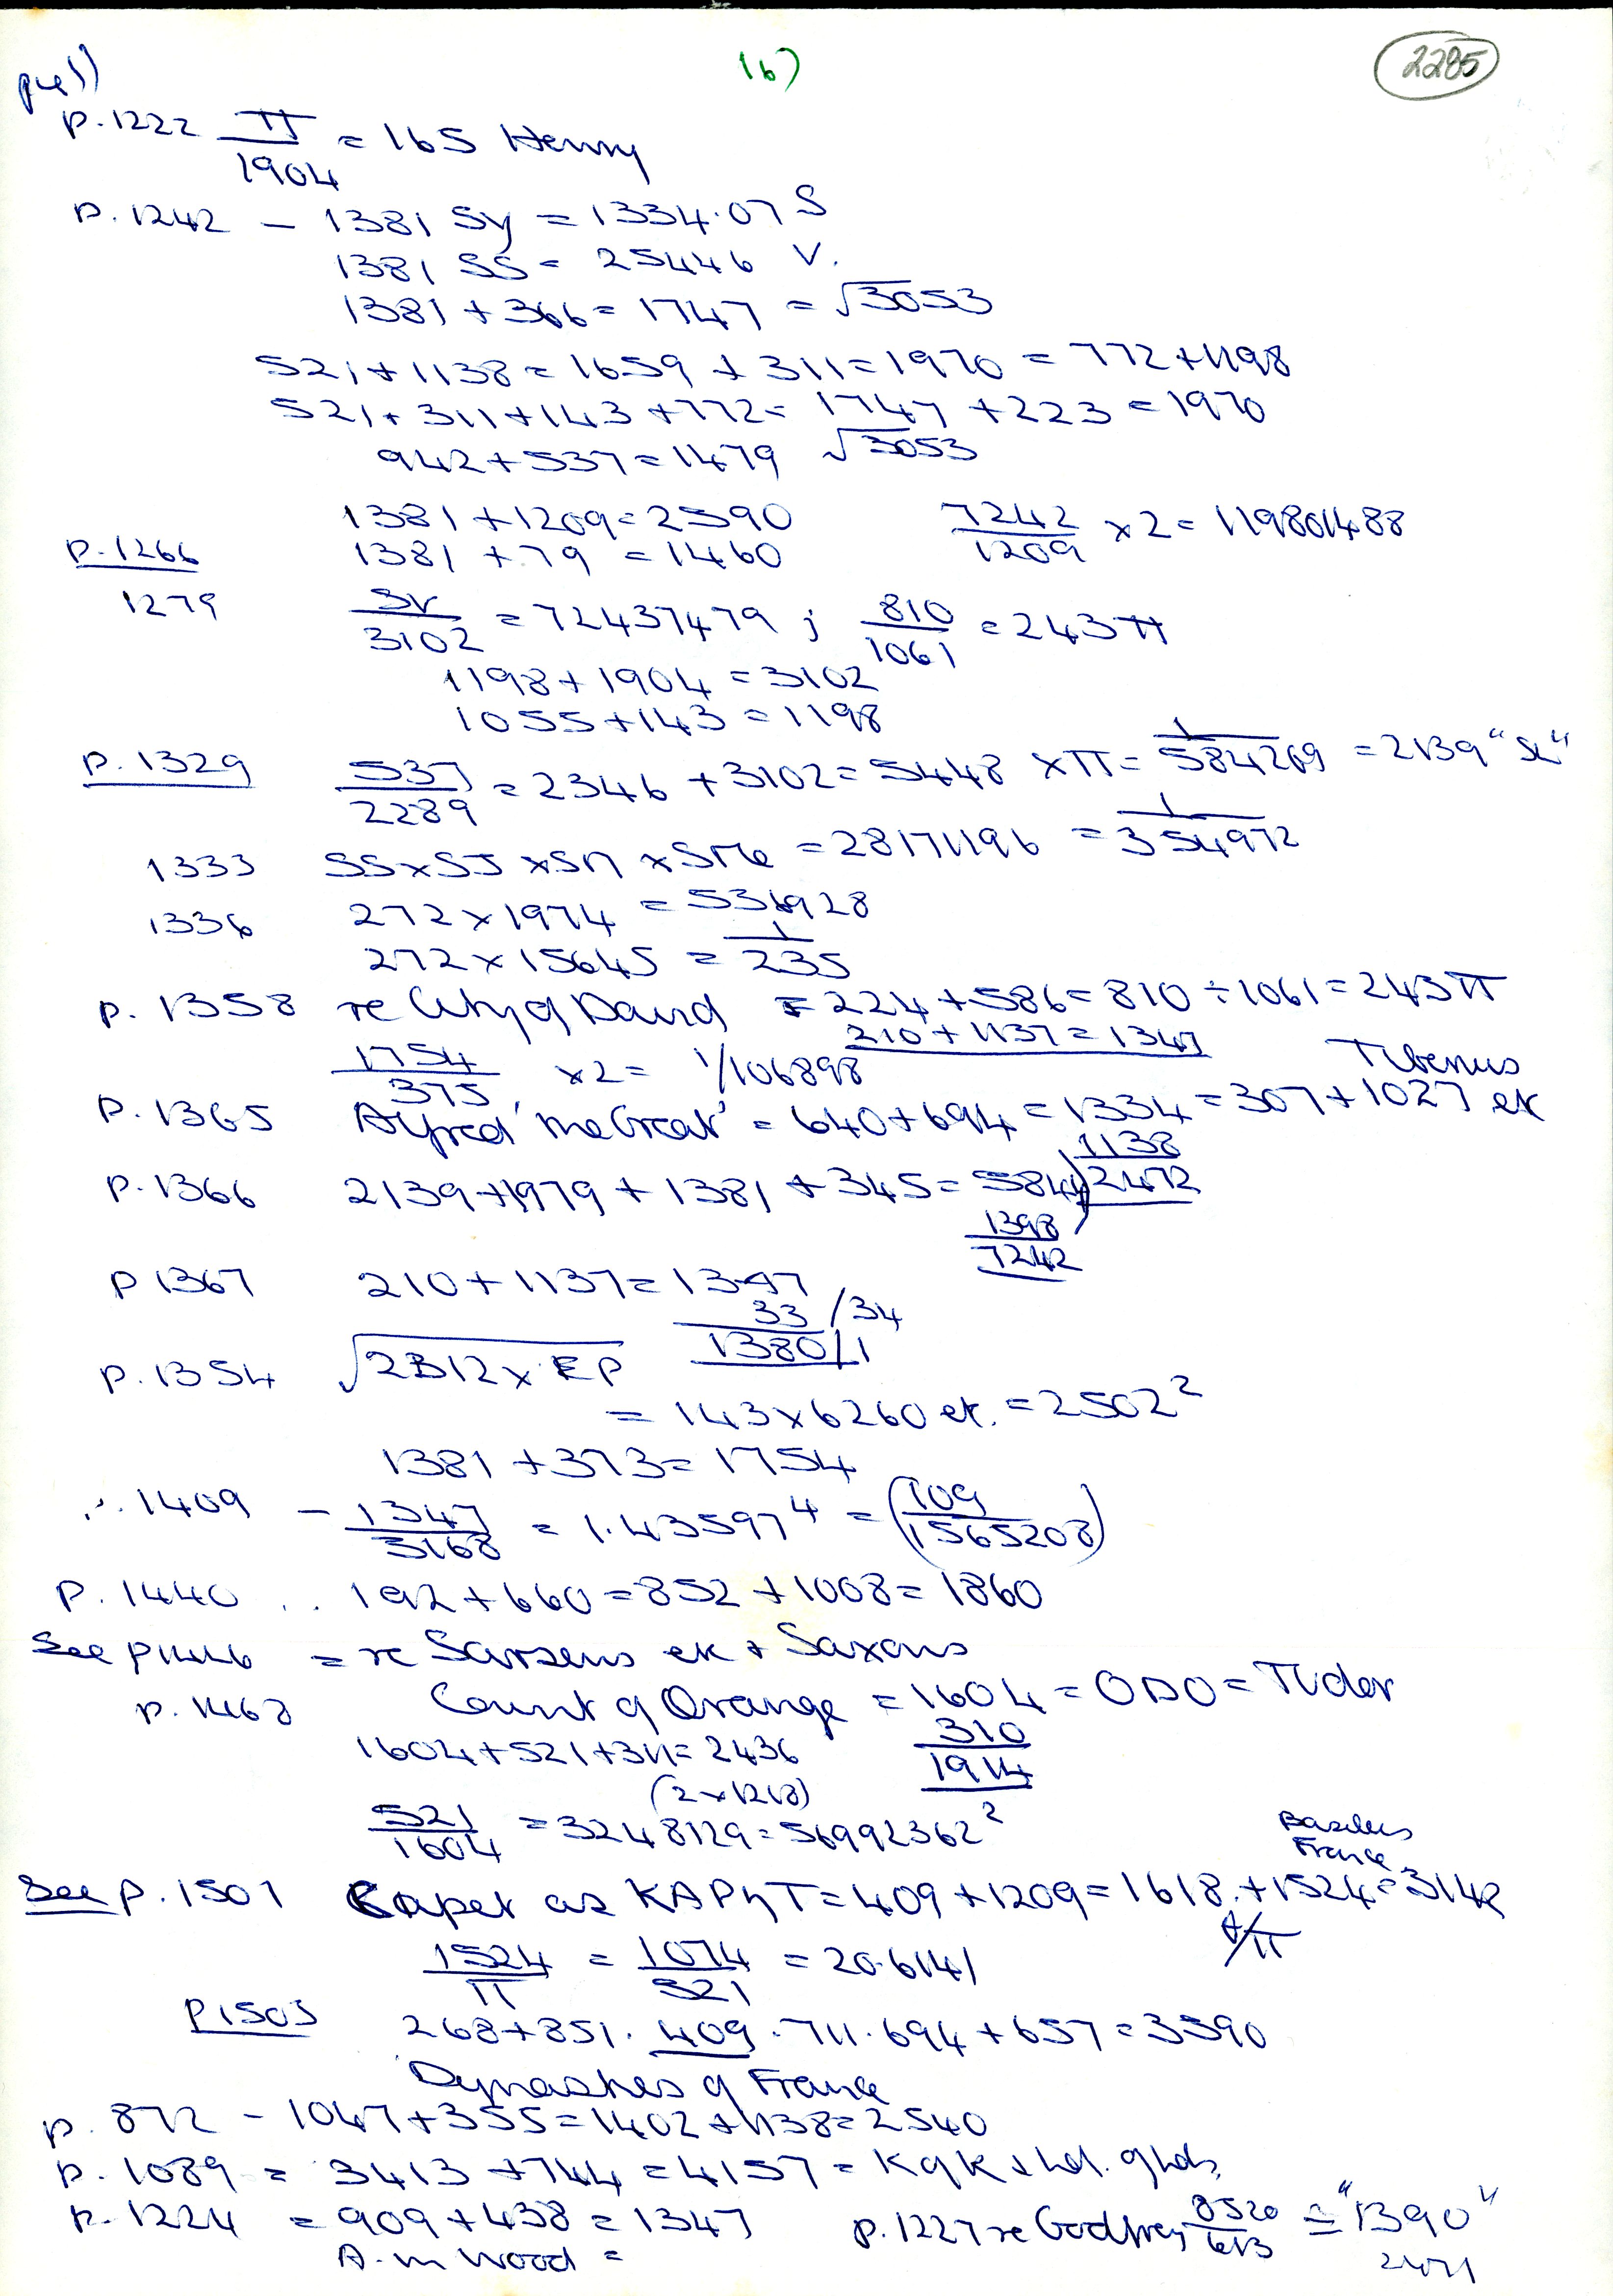 (6)
2285
p. 1222 π/1904 = 165 Henry
p. 1242 – 1381 Sy = 1334.07 S
1381 SS = 25446 V.
1381 + 366 = 1747 = √3053
521 + 1138 = 1659 + 311 = 1970 = 772 + 1198
521 + 311 + 143 + 772 = 1747 + 223 = 1970
942 + 537 = 1479 √3053
1381 + 1209 = 2590 7242/1209 × 2 = 119801488
p. 1266 1381 + 79 = 1460
1279 SV/3102 = 72437479 ; 810/1061 = 243π
1198 + 1904 = 3102
1055 + 143 = 1198
p. 1329 537/2289 = 2346 + 3102 = 5448 × π = 1/584269 = 2139 "SL"
1333 SS × SJ × SM × SMe = 28171196 = 1/354972
1336 272 × 1974 = 536928
272 × 15645 = 1/235
p. 1358 re City of David = 224 + 586 = 810 ÷ 1061 = 243π
210 + 1137 = 1347
1754/375 × 2 = 1/106898
Tiberius
p. 1365 Alfred 'the Great' = 640 + 694 = 1334 = 307 + 1027 etc
1138
p. 1366 2139 + 1979 + 1381 + 345 = 5844 ) 2472
1398
7242
p 1367 210 + 1137 = 1347
33 / 34
1380/1
p. 1354 √2312 × EP
= 143 × 6260 etc. = 2502²
1381 + 373 = 1754
∴ 1409 – 1347/3168 = 1.435974 = (109/1565208)
p. 1440 .. 192 + 660 = 852 + 1008 = 1860
See p1446 = re Sarsens etc + Saxons
p. 1468 Count of Orange = 1604 = ODO = Tudor
310
1914
1604 + 521 + 311 = 2436
(2 × 1218)
521/1604 = 3248129 = 56992362²
Basileus
France
See p. 1501 Capet as KAPηT = 409 + 1209 = 1618 + 1524 = 3142
/π
1524/π = 1074/521 = 20.6141
p1503 268 + 851 . 409 . 711 . 694 + 657 = 3590
Dynasties of France
p. 872 – 1047 + 355 = 1402 + 1138 = 2540
p. 1089 = 3413 + 744 = 4157 = K of K + Ld. of Lds
p. 1224 = 909 + 438 = 1347
A.m Wood =
p. 1227 re Godfrey 8520/613 = "1390"
2471